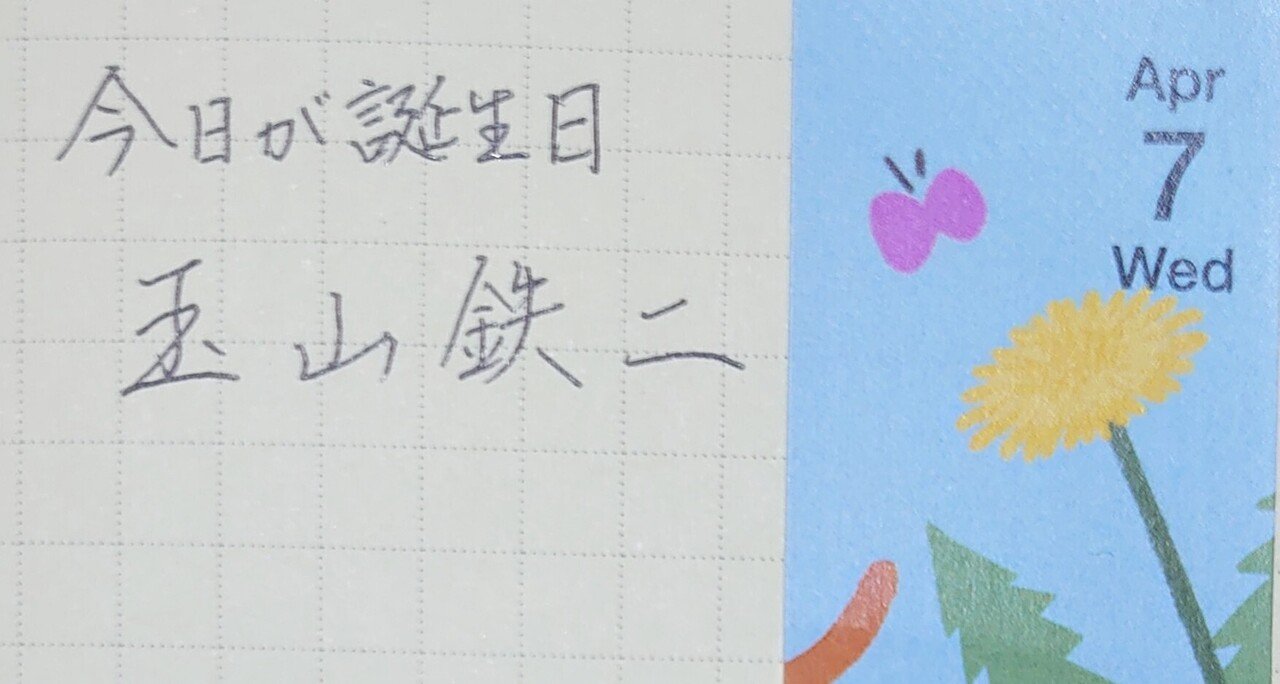 今日が誕生日
玉山鉄二
Apr
7
Wed